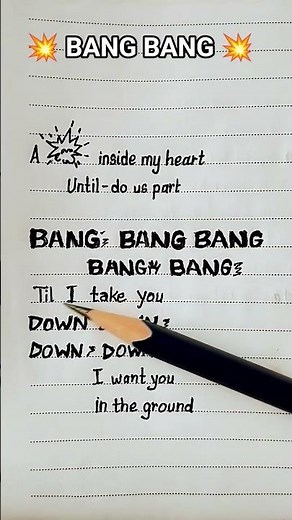 💥 BANG BANG 💥
A - inside my heart
Until - do us part
BANG BANG BANG
BANG BANG
Til I take you
DOWN
DOWN DOWN
I want you
in the ground